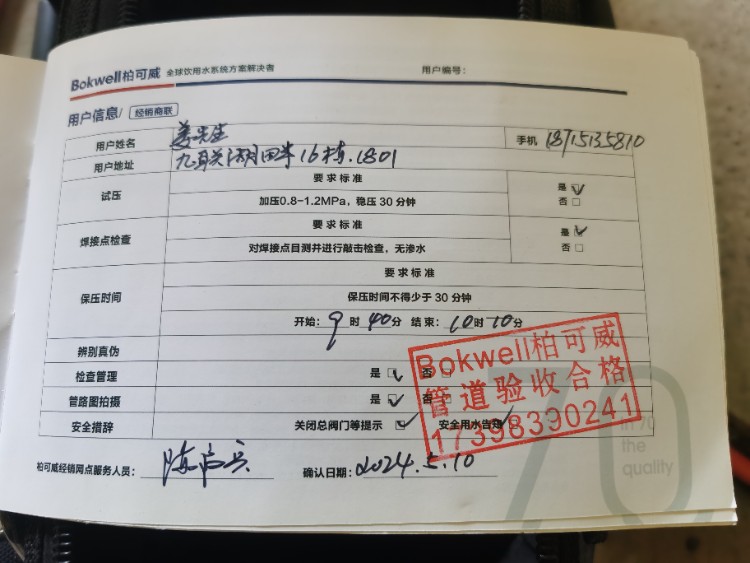 Bokwell柏可威 全球饮用水系统方案解决者 用户编号：
用户信息/ 经销商联
用户姓名 姜先生 手机 18715135810
用户地址 九月关湖田半 16栋.1801
试压 要求标准 是 √
加压0.8-1.2MPa，稳压30分钟 否 □
焊接点检查 要求标准 是 √
对焊接点目测并进行敲击检查，无渗水 否 □
保压时间 要求标准
保压时间不得少于30分钟
开始：9时40分 结束：10时10分
辨别真伪
检查管理 是 √ 否 □
管路图拍摄 是 √
安全措辞 关闭总阀门等提示 √ 安全用水告知 √
Bokwell柏可威
管道验收合格
17398390241
in 70
the
quality
70
柏可威经销网点服务人员： 确认日期：2024.5.10